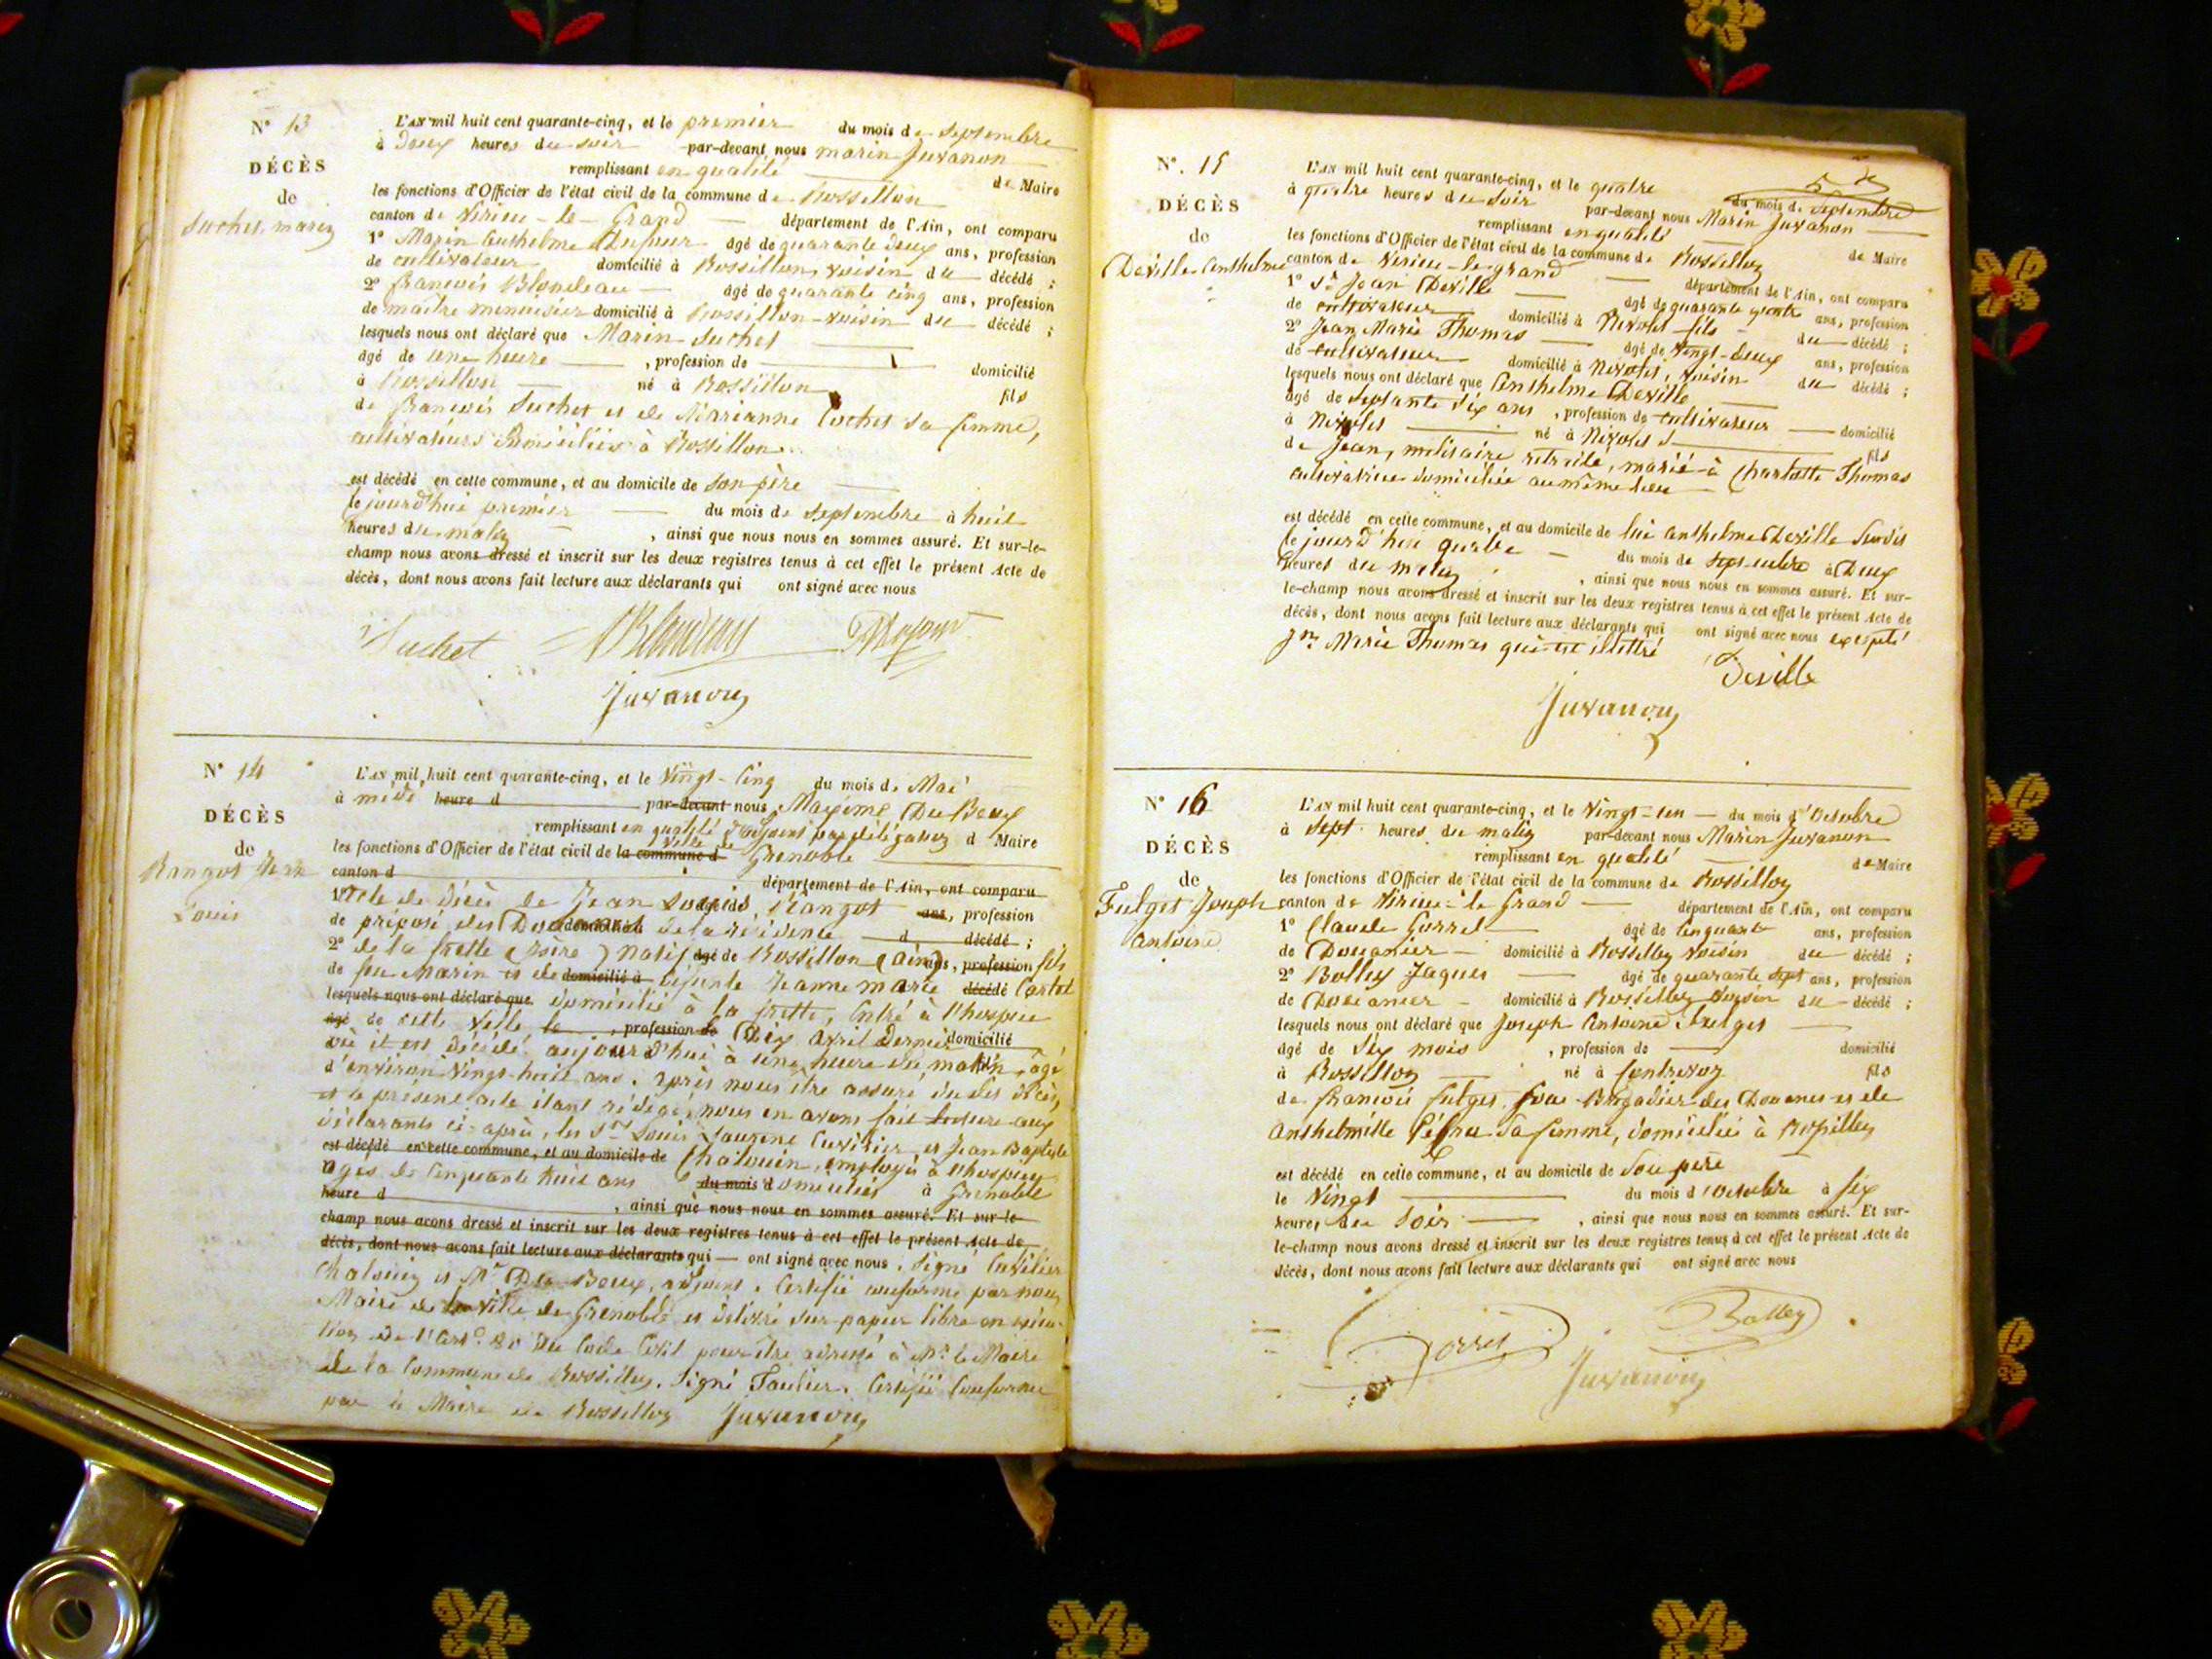 N° 13
DÉCÈS
de
Suchet marin
L'AN mil huit cent quarante-cinq, et le premier du mois de septembre
à Deux heures du soir par-devant nous marin Juvanon
remplissant en qualité de Maire
les fonctions d'Officier de l'état civil de la commune de Rossillon
canton de Virieu-le-Grand département de l'Ain, ont comparu
1° Marin Anthelme Dufour âgé de quarante deux ans, profession
de cultivateur domicilié à Rossillon, voisin du décédé ;
2° François Blondeau âgé de quarante cinq ans, profession
de maître menuisier domicilié à Rossillon voisin du décédé ;
lesquels nous ont déclaré que Marin Suchet
âgé de une heure , profession de domicilié
à Rossillon né à Rossillon fils
de François Suchet et de Marianne Cochet sa femme,
cultivateurs domiciliés à Rossillon.
est décédé en cette commune, et au domicile de son père
le jourd'hui premier du mois de septembre à huit
heures du matin , ainsi que nous nous en sommes assuré. Et sur-le-
champ nous avons dressé et inscrit sur les deux registres tenus à cet effet le présent Acte de
décès, dont nous avons fait lecture aux déclarants qui ont signé avec nous
Suchet Blondeau Dufour
Juvanon
N° 14
DÉCÈS
de
Rangot Jean
Louis
L'AN mil huit cent quarante-cinq, et le Vingt-Cinq du mois de Mai
à midi heure d par-devant nous Maxime Du Boux
remplissant en qualité d'adjoint par délégation d Maire
les fonctions d'Officier de l'état civil de la commune d ville de Grenoble
canton d département de l'Ain, ont comparu
1° Acte de décès de Jean Louis Rangot âgé de ans, profession
de préposé des Douanes domicilié à la résidence d décédé ;
2° de la frette (isère) natif âgé de Rossillon (ain) ans, profession fils
de feu Marin et de domicilié à défunte Jeanne marie décédé Cartet
lesquels nous ont déclaré que domicilié à la frette, Entré à l'hospice
âgé de cette Ville le , profession de Dix Avril dernier domicilié
où il est décédé aujourd'hui à une heure du matin, âgé
d'environ vingt-huit ans. après nous être assuré du dit décès,
et le présent acte étant rédigé, nous en avons fait lecture aux
déclarants ci-après, les Srs Louis Laurent Cuvilier et Jean Baptiste
est décédé en cette commune, et au domicile de Chalouin, employés à l'hospice
âgés de Cinquante huit ans du mois d domiciliés à Grenoble
heure d , ainsi que nous nous en sommes assuré. Et sur-le-
champ nous avons dressé et inscrit sur les deux registres tenus à cet effet le présent Acte de
décès, dont nous avons fait lecture aux déclarants qui ont signé avec nous. Signé Cuvilier
Chalouin et Mr Du Boux, adjoint. Certifié conforme par nous
Maire de la ville de Grenoble et délivré sur papier libre en exécu-
tion de l'art. 80 du Code Civil pour être adressé à Mr le Maire
de la Commune de Rossillon. Signé Taulier. Certifié Conforme
par le Maire de Rossillon Juvanon
N°. 15
DÉCÈS
de
Deville Anthelme
L'AN mil huit cent quarante-cinq, et le quatre du mois de Septembre
à quatre heures du soir par-devant nous Marin Juvanon
remplissant en qualité de Maire
les fonctions d'Officier de l'état civil de la commune de Rossillon
canton de Virieu-le-grand département de l'Ain, ont comparu
1° Sr Jean Deville âgé de quarante quatre ans, profession
de cultivateur domicilié à Nivolet fils du décédé ;
2° Jean Marie Thomas âgé de Vingt-Deux ans, profession
de cultivateur domicilié à Nivolet, voisin du décédé ;
lesquels nous ont déclaré que Anthelme Deville
âgé de septante six ans , profession de cultivateur domicilié
à Nivolet né à Nivolet fils
de Jean, militaire retraité, marié à Charlotte Thomas
cultivatrice domiciliée au même lieu
est décédé en cette commune, et au domicile de lui Anthelme Deville susdit
le jourd'hui quatre du mois de septembre à Deux
heures du matin , ainsi que nous nous en sommes assuré. Et sur-
le-champ nous avons dressé et inscrit sur les deux registres tenus à cet effet le présent Acte de
décès, dont nous avons fait lecture aux déclarants qui ont signé avec nous excepté
Jn Marie Thomas qui est illettré
Deville
Juvanon
N° 16
DÉCÈS
de
Fulget Joseph
Antoine
L'AN mil huit cent quarante-cinq, et le Vingt-un du mois d'Octobre
à sept heures du matin par-devant nous Marin Juvanon
remplissant en qualité de Maire
les fonctions d'Officier de l'état civil de la commune de Rossillon
canton de Virieu-le Grand département de l'Ain, ont comparu
1° Claude Gorret âgé de Cinquante ans, profession
de Douanier domicilié à Rossillon voisin du décédé ;
2° Bolley Jaques âgé de quarante sept ans, profession
de Douanier domicilié à Rossillon voisin du décédé ;
lesquels nous ont déclaré que Joseph Antoine Fulget
âgé de Six mois , profession de domicilié
à Rossillon né à Contrevoz fils
de François Fulget, sous-Brigadier des Douanes et de
Anthelmille sa femme, domiciliés à Rossillon
est décédé en cette commune, et au domicile de son père
le Vingt du mois d'Octobre à six
heures du soir , ainsi que nous nous en sommes assuré. Et sur-
le-champ nous avons dressé et inscrit sur les deux registres tenus à cet effet le présent Acte de
décès, dont nous avons fait lecture aux déclarants qui ont signé avec nous
Gorret Bolley
Juvanon